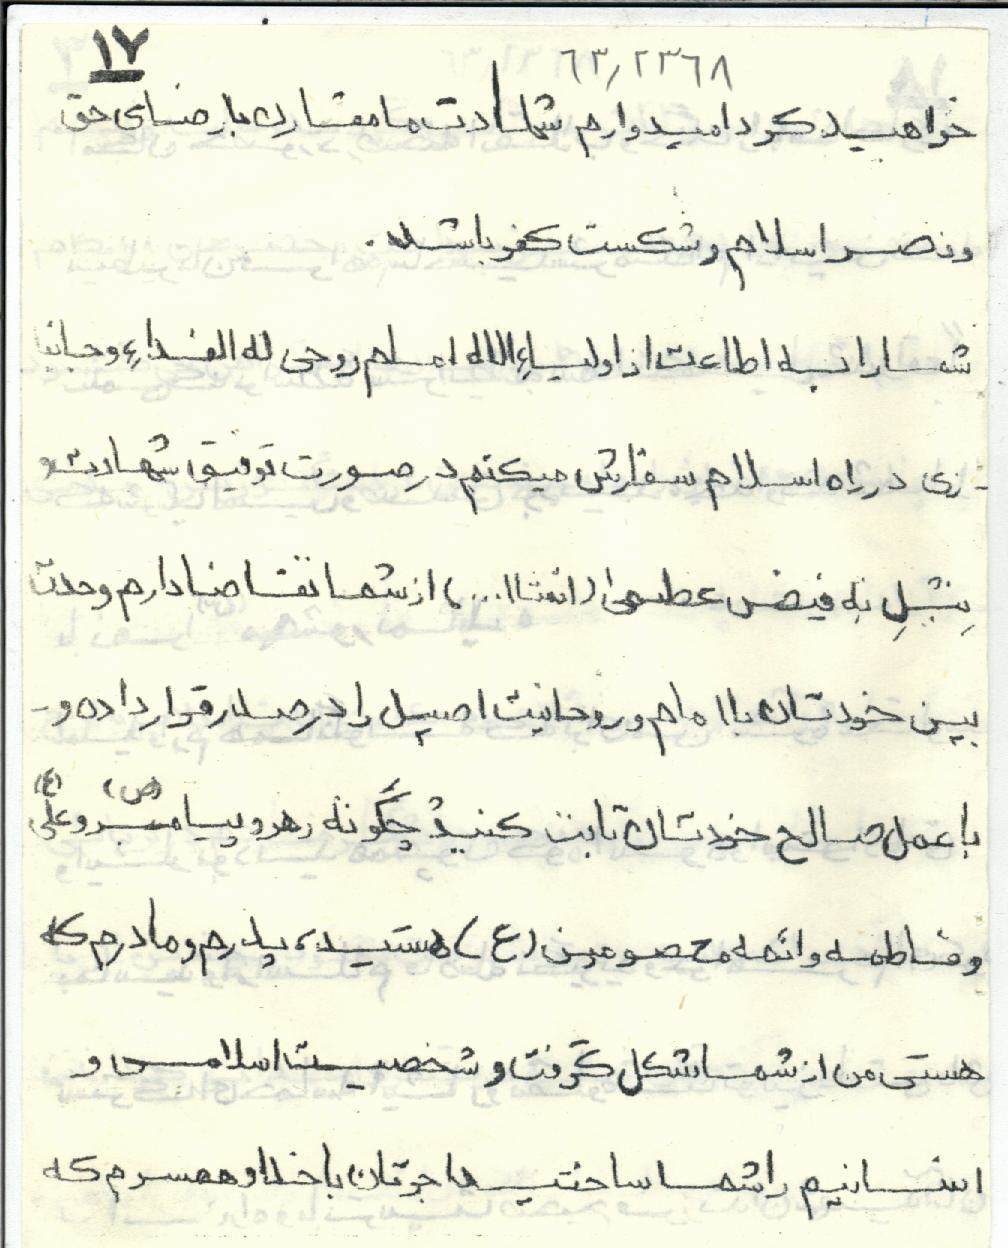 ۱۷
۶۳٫۲۳۶۸
خواهید کرد امیدوارم شهادت ما مقارن با رضای حق
و نصر اسلام و شکست کفر باشد.
شما را به اطاعت از اولیاءالله امام روحی له الفداء و جانبا
زی در راه اسلام سفارش میکنم در صورت توفیق شهادت و
به فیض عظمی (انشاا...) از شما تقاضا دارم وحدت
بین خودتان با امام و روحانیت اصیل را در صدر قرار داده و
با عمل صالح خودتان ثابت کنید چگونه رهرو پیامبر (ص) و علی (ع)
و فاطمه و ائمه معصومین (ع) هستید، پدرم و مادرم که
هستی من از شما شکل گرفت و شخصیت اسلامی و
انسانیم را شما ساختید اجرتان با خدا و همسرم که